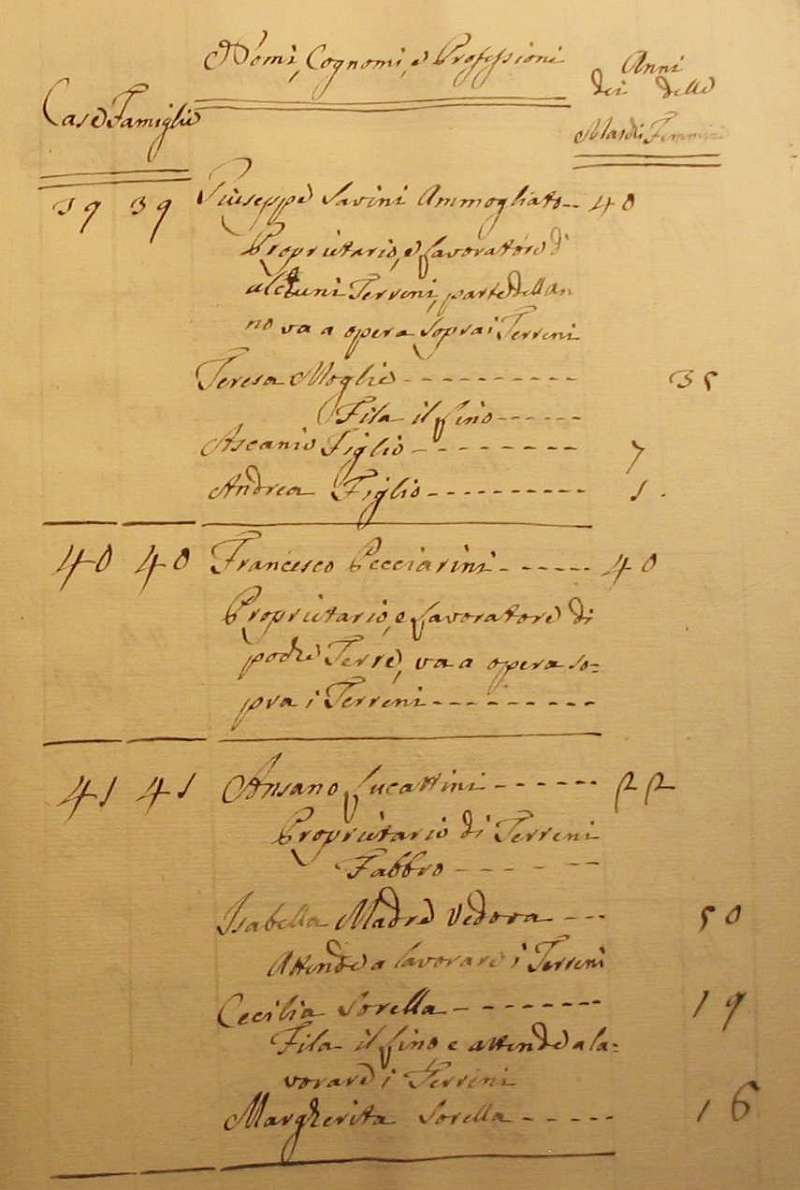 Nomi, Cognomi, e Professioni
Anni
dei delle
Case Famiglie
Maschi Femmine
39 39 Giuseppe Savini Ammogliato 40
Proprietario, e Lavoratore di
alcuni Terreni, parte dell'An
no va a opera Sopra i Terreni
Teresa Moglie 35
Fila il Lino
Ascanio Figlio 7
Andrea Figlio 1.
40 40 Francesco Pecciarini 40
Proprietario, e Lavoratore di
poche Terre, va a opera so=
pra i Terreni
41 41 Ansano Lucattini 22
Proprietario di Terreni
Fabbro
Isabella Madre Vedova 50
Attende a lavorare i Terreni
Cecilia Sorella 19
Fila il Lino e attende a la=
vorare i Terreni
Margherita Sorella 16